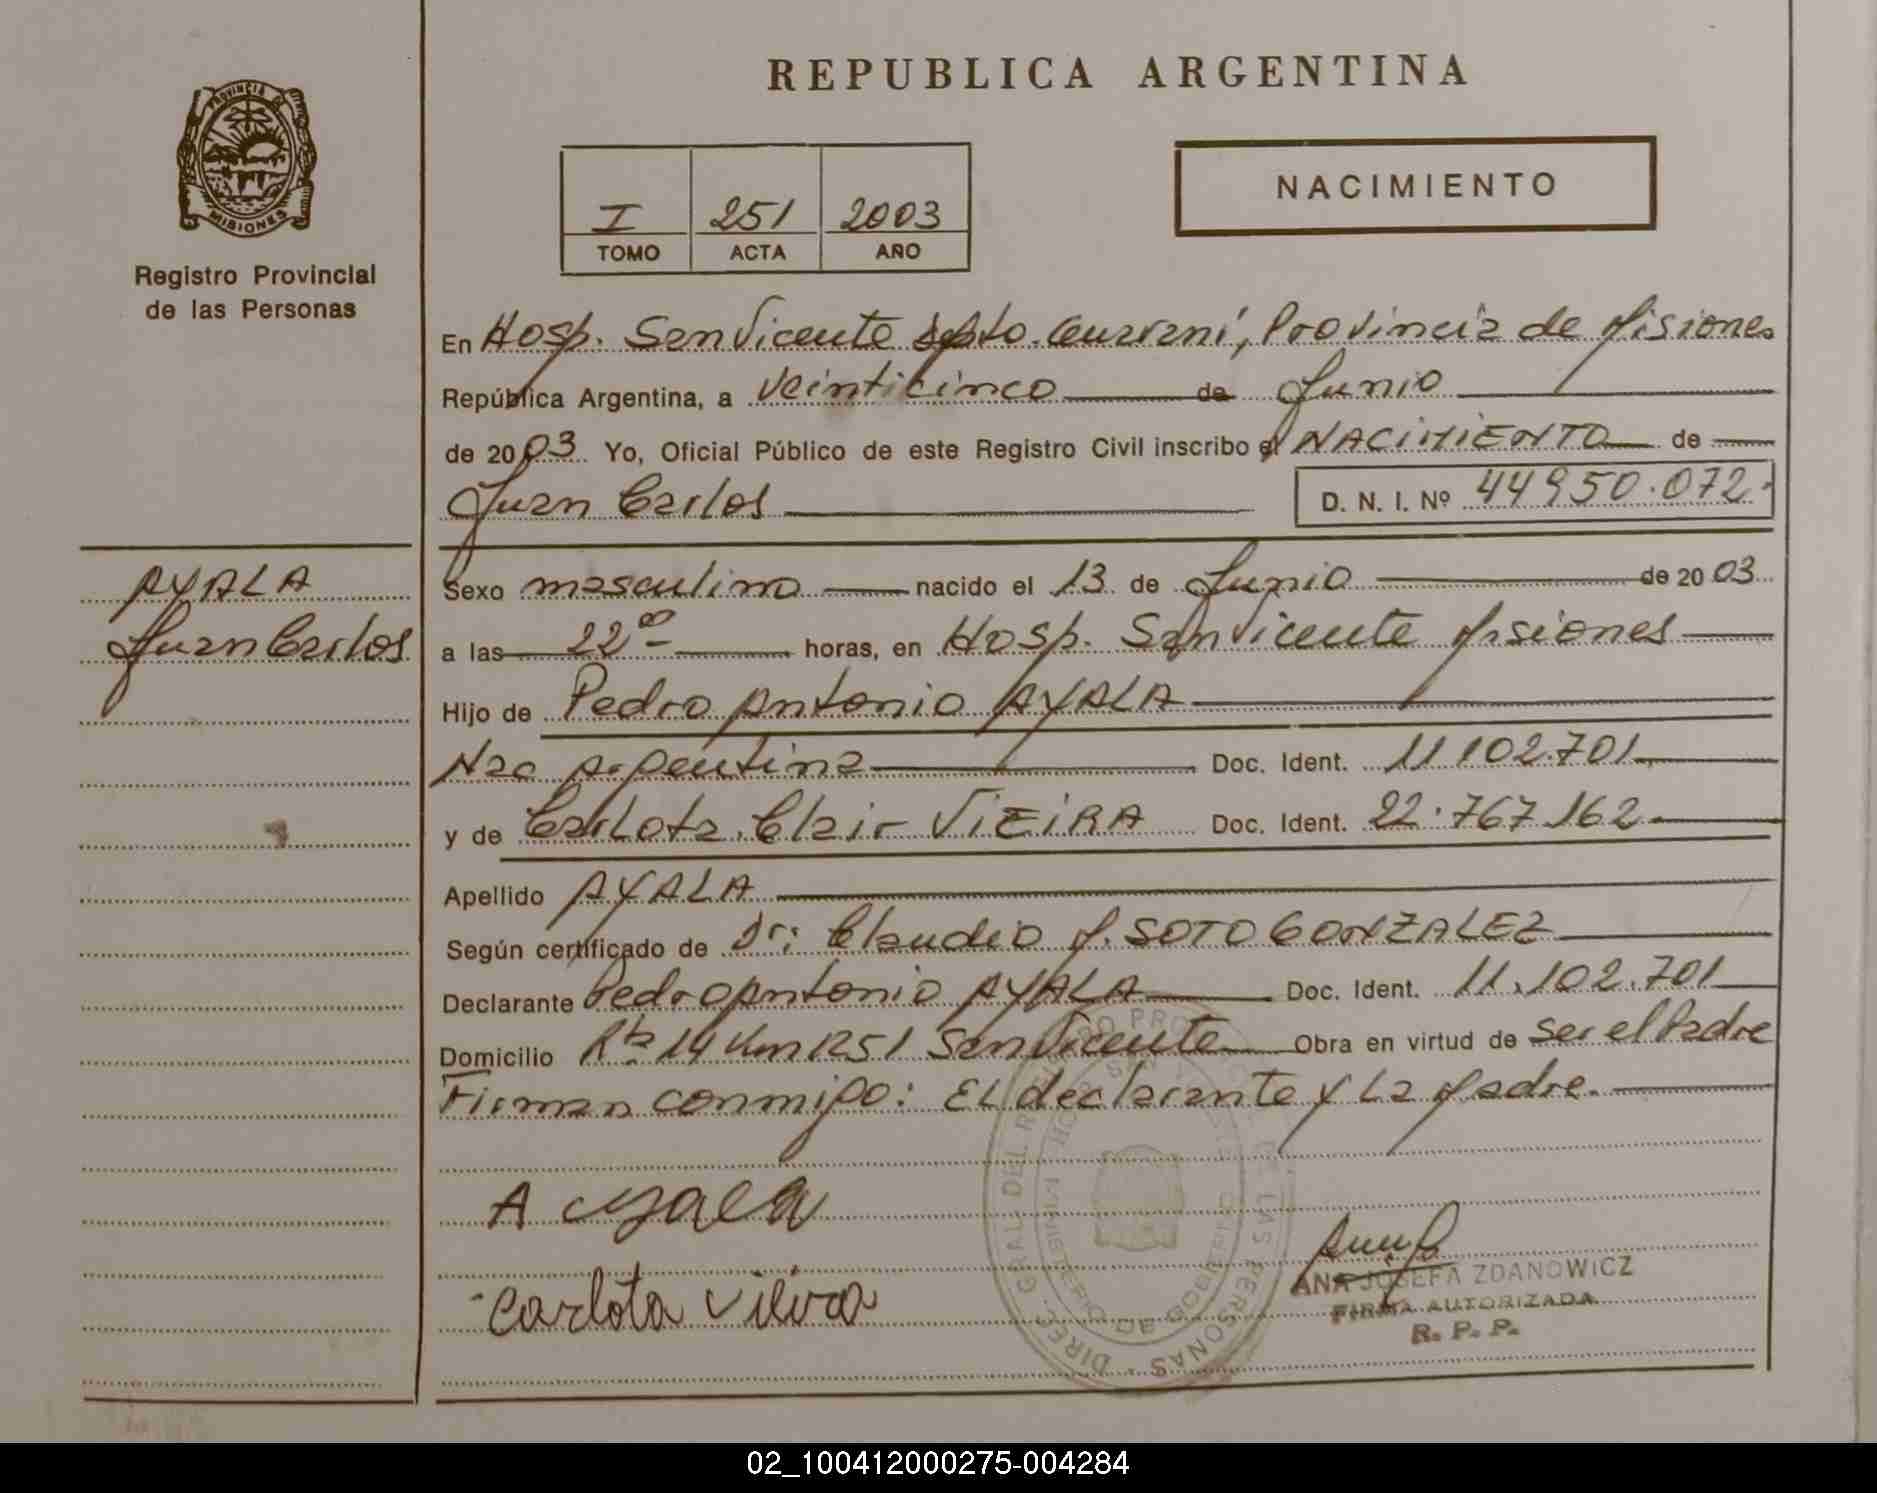 REPUBLICA ARGENTINA
PROVINCIA DE
MISIONES
Registro Provincial
de las Personas
I 251 2003
TOMO ACTA AÑO
NACIMIENTO
En Hosp. San Vicente Dpto. Guaraní, Provincia de Misiones
República Argentina, a veinticinco de Junio
de 2003 Yo, Oficial Público de este Registro Civil inscribo el NACIMIENTO de
Juan Carlos D. N. I. Nº 44950.072.
AYALA
Juan Carlos
Sexo masculino nacido el 13 de Junio de 2003
a las 22 00 horas, en Hosp. San Vicente Misiones
Hijo de Pedro Antonio AYALA
Nac Argentina Doc. Ident. 11102.701
y de Carlota Clair VIEIRA Doc. Ident. 22.767.162
Apellido AYALA
Según certificado de Dr: Claudio M. SOTO GONZALEZ
Declarante Pedro Antonio AYALA Doc. Ident. 11.102.701
Domicilio Rta 14 Km 1251 San Vicente Obra en virtud de Ser el Padre
Firman conmigo: El declarante y La Madre.
A ayala
Carlota Vieira
ANA JOSEFA ZDANOWICZ
FIRMA AUTORIZADA
R. P. P.
DIREC. GRAL. DEL DE LAS PERSONAS
MINISTERIO DE GOBIERNO
02_100412000275-004284